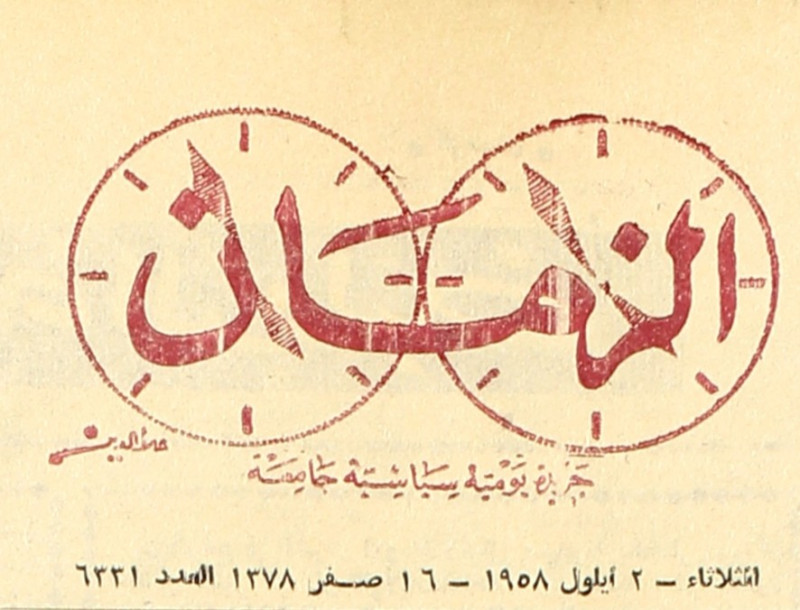 الزمان
علاء الدين
جريدة يومية سياسية جامعة
الثلاثاء – ٢ أيلول ١٩٥٨ – ١٦ صفر ١٣٧٨ العدد ٦٣٣١